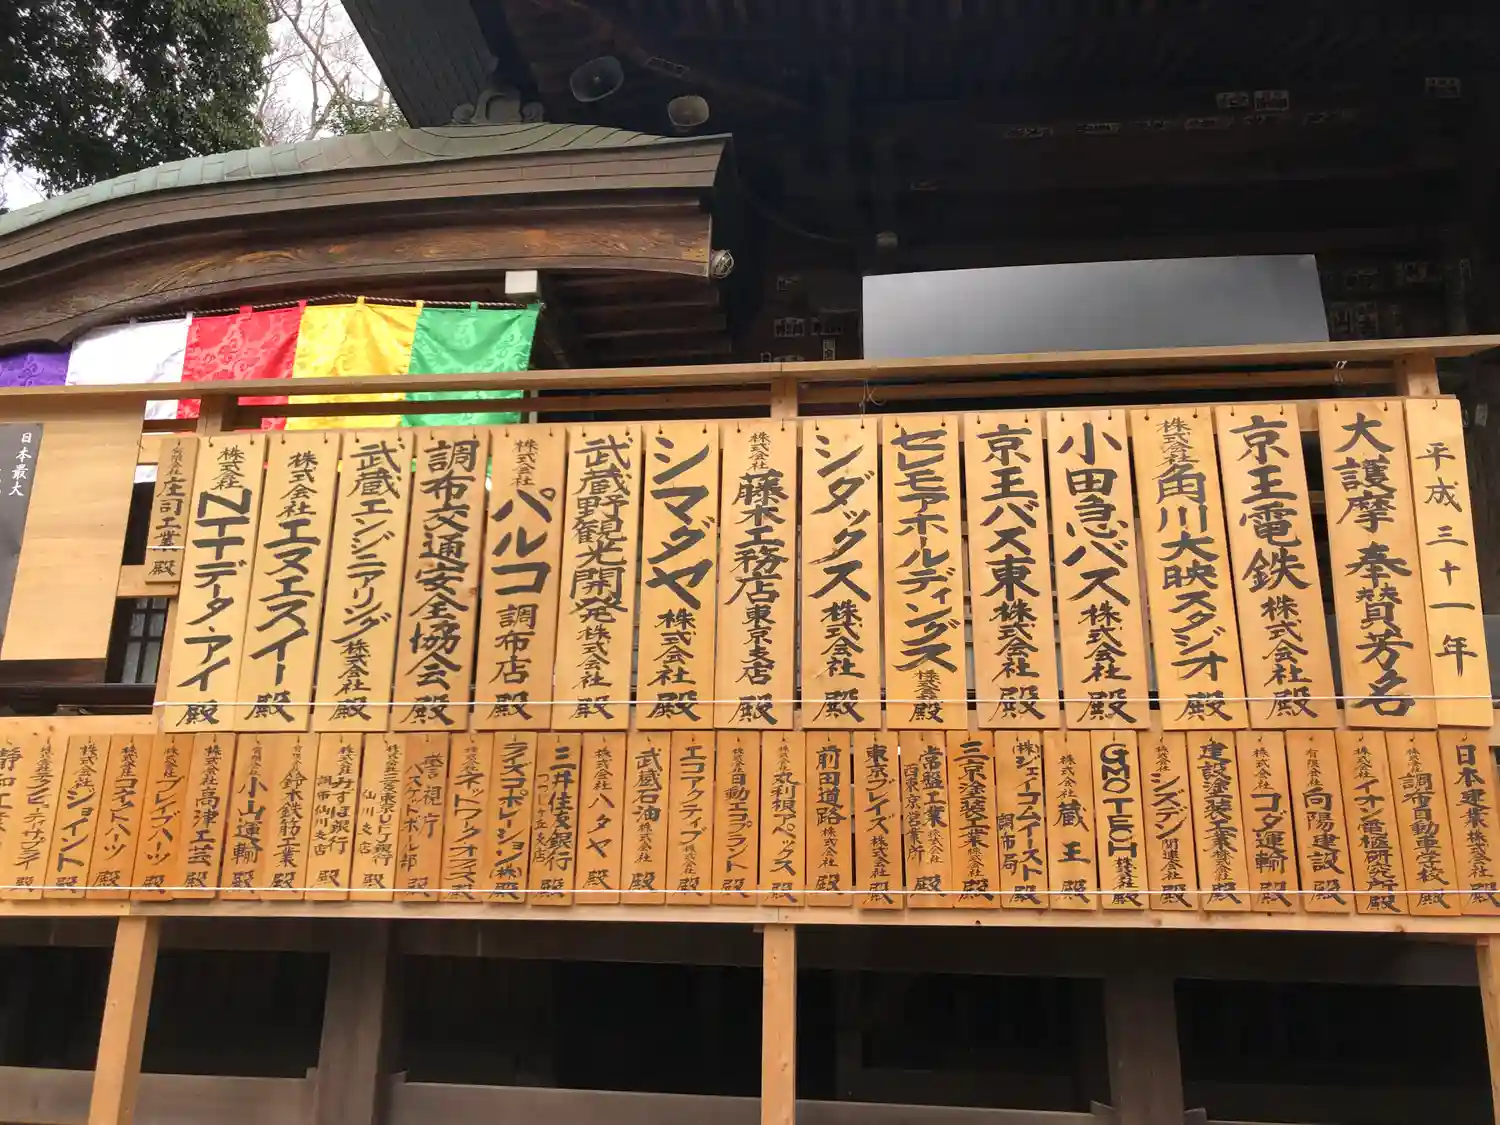 平成三十一年
大護摩奉賛芳名
京王電鉄株式会社殿
株式会社角川大映スタジオ殿
小田急バス株式会社殿
京王バス東株式会社殿
セレモアホールディングス株式会社殿
シダックス株式会社殿
株式会社藤木工務店東京支店殿
シマダヤ株式会社殿
武蔵野観光開発株式会社殿
株式会社パルコ調布店殿
調布交通安全協会殿
武蔵エンジニアリング株式会社殿
株式会社エヌエスイー殿
株式会社NTTデータ・アイ殿
有限会社庄司工業殿
日本最大
日本建業株式会社殿
株式会社調布自動車学校殿
株式会社イオン電極研究所殿
有限会社向陽建設殿
株式会社コダ運輸殿
建設塗装工業株式会社殿
株式会社シズデン関連会社殿
GMO TECH株式会社殿
株式会社蔵王殿
(株)ジェイコムイースト調布局殿
三京塗装工業株式会社殿
常盤工業株式会社西東京営業所殿
東京ブレイズ株式会社殿
前田道路株式会社殿
株式会社丸利根アペックス殿
株式会社日動エコプラント殿
エコアクティブ株式会社殿
武蔵石油株式会社殿
株式会社ハタヤ殿
三井住友銀行つつじヶ丘支店殿
ライズコーポレーション(株)殿
株式会社ネットワークオアシス殿
警視庁バスケットボール部殿
株式会社三菱東京UFJ銀行仙川支店殿
株式会社みずほ銀行調布仙川支店殿
有限会社鈴木鉄筋工業殿
有限会社小山運輸殿
株式会社高津工芸殿
株式会社ブレイブハーツ殿
株式会社コネクトハーツ殿
株式会社ジョイント殿